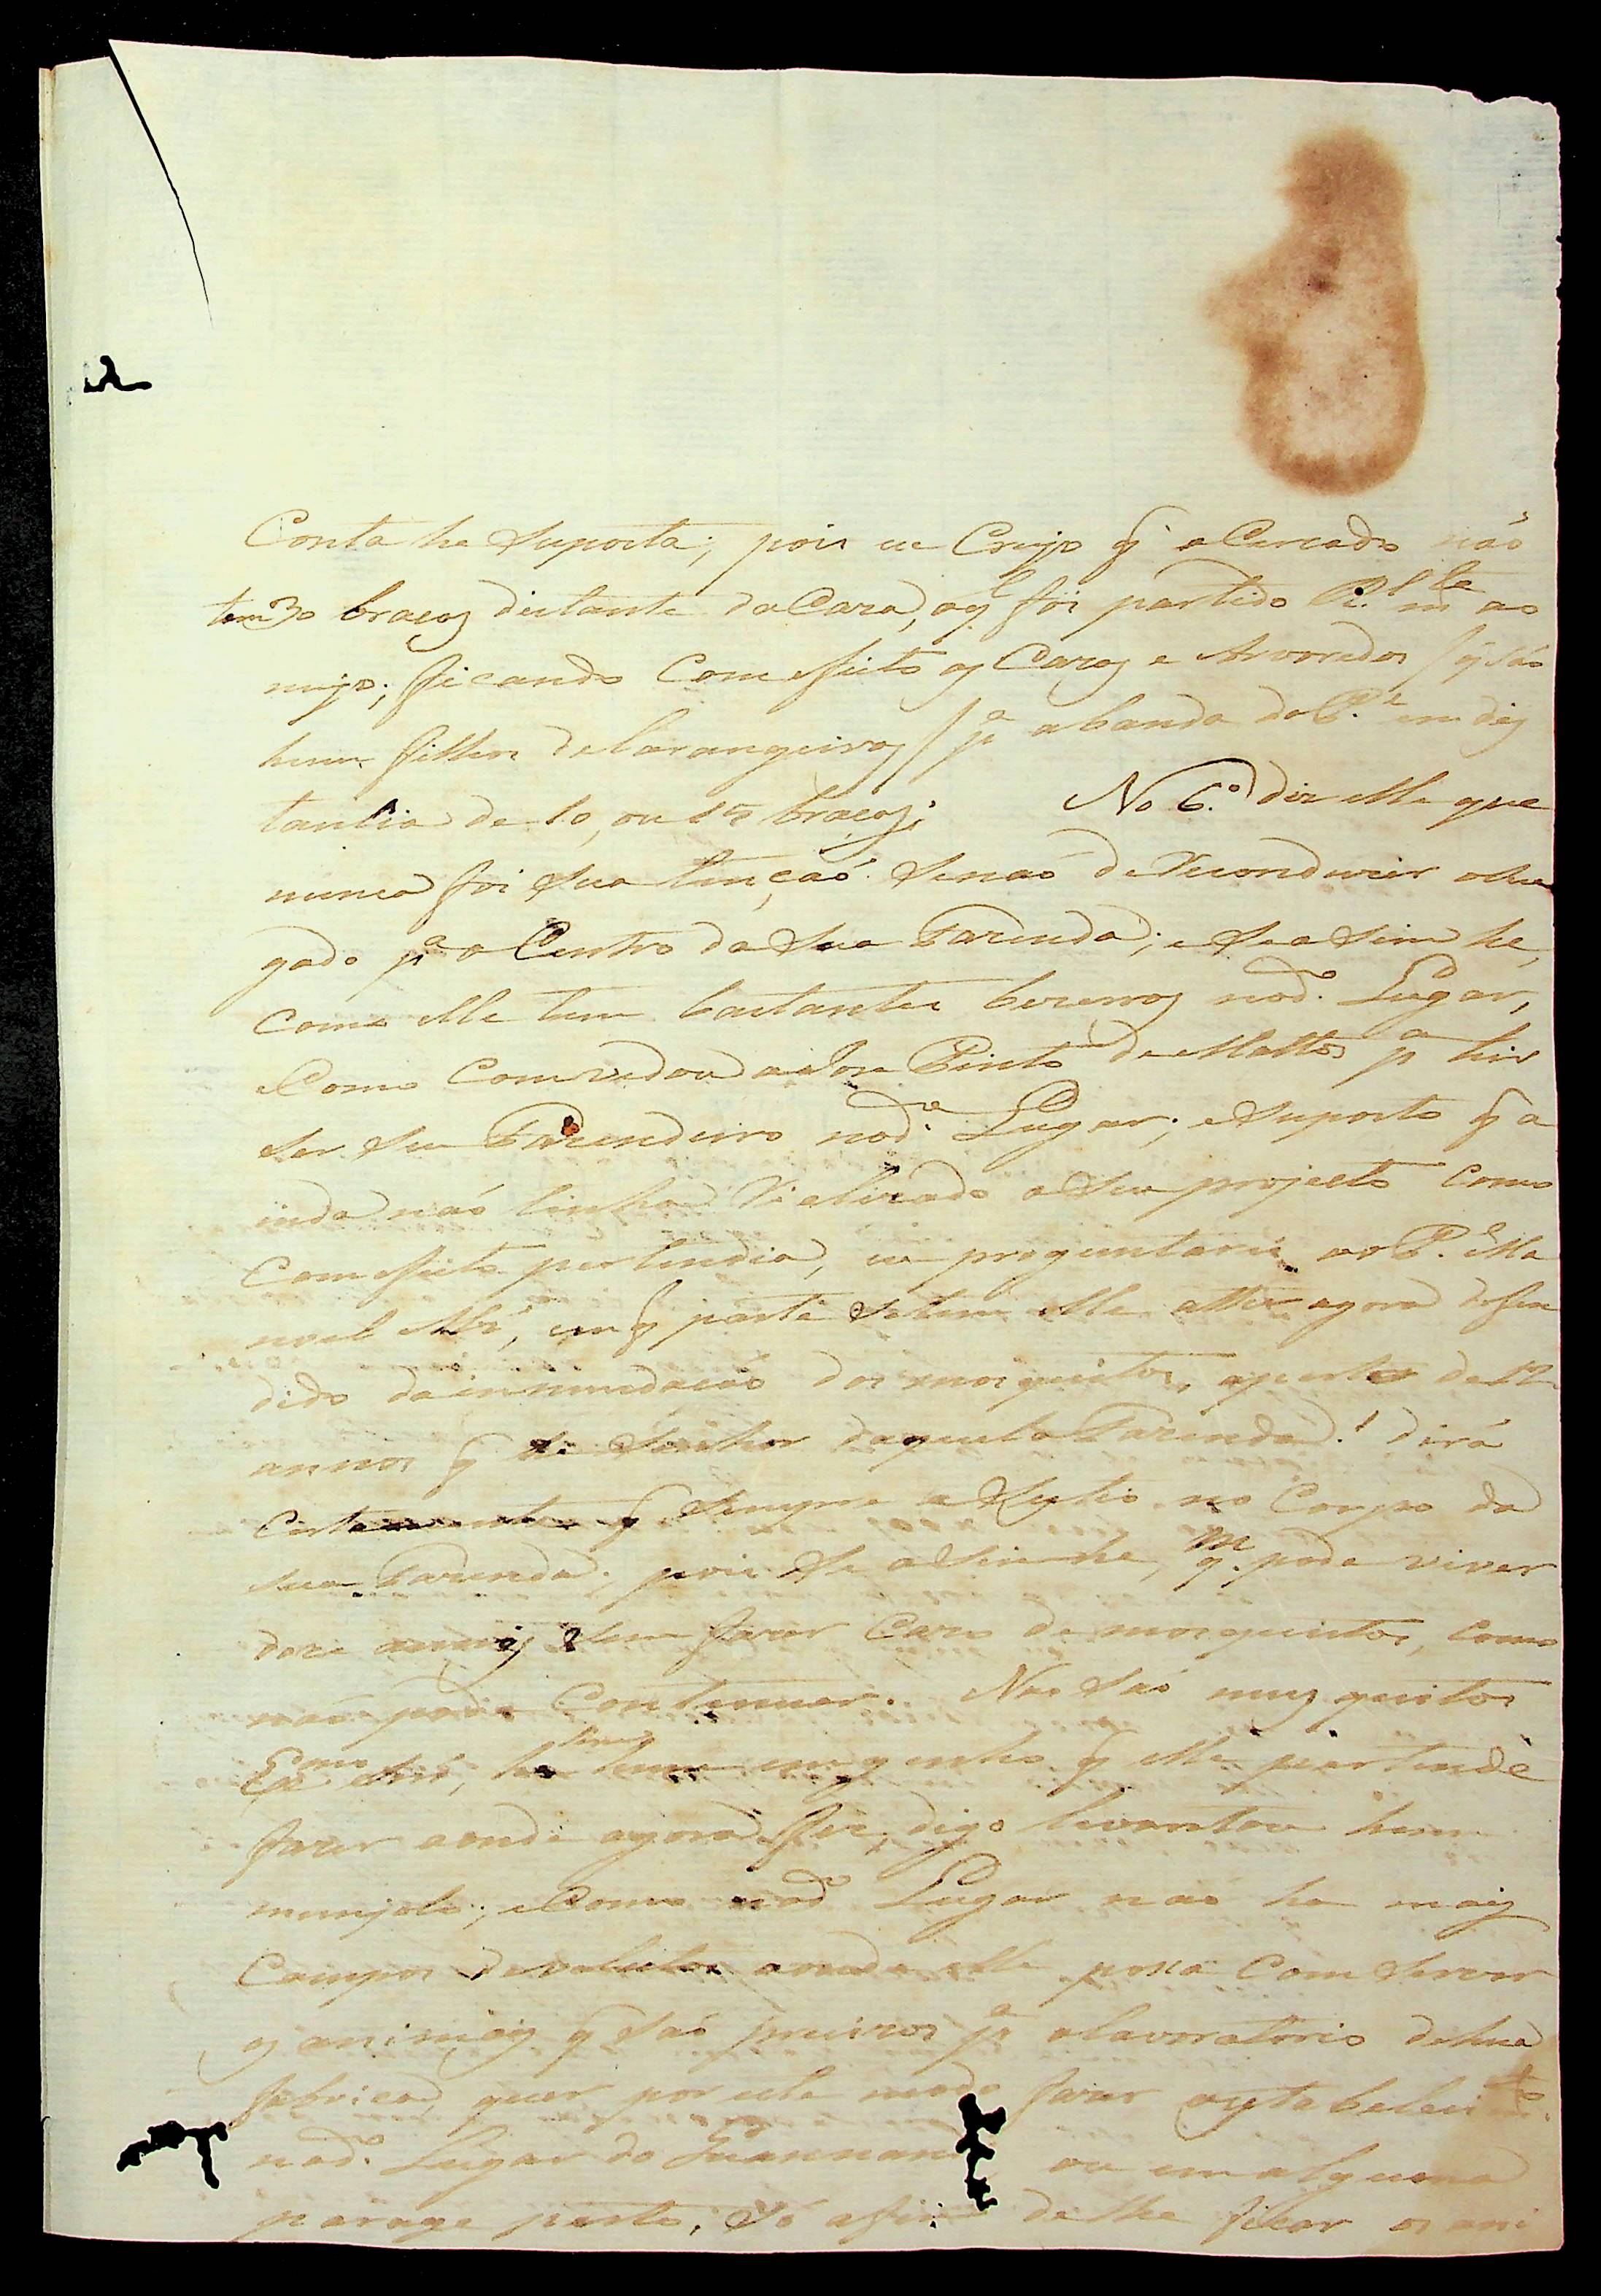 Conta he suposta; pois eu Creyo q̃ o Cercado não
tem 30 braças distante da Caza, o ql foi partido R.l m.te ao
meyo; ficando Com effeito as Cazas e Arvoredos / q̃ são
huma fileira de larangeiras / p.a a banda do P.e em dis
tancia de 10, ou 15 braças; No 6.o diz elle que
nunca foi sua tenção senão de Reconduzir o seu
gado p.a o Centro da Sua Fazenda; e Se asim he,
como elle tem bastantes bezerros no d.o Lugar,
e Como Comvedou a Joze Pinto de Mattos p.a hir
ser seu Fazendeiro no d.o Lugar; e suposto q̃ a
inda não tinha Rializado o seu projecto como
Com effeito pertendia, eu proguntaria ao P.e Ma
noel, em q̃ parte se tem elle athe agora defen
dido da innundação dos mosquitos, a perto de 12
annos q̃ he Senhor daquela Fazenda! dirá
Certamente q̃ Sempre asestio no Corpo da
sua Fazenda; pois se asim he, q.m pode viver
doze annos sem fazer Cazo de mosquitos, como
não pode Continuar. Não são musquitos
Ex.mo Snr, he sim hum engenho q̃ elle pertende
fazer aonde agora fez, digo levantou hum
munjolo; e Como no d.o Lugar não ha mais
Campos devolutos aonde elle possa Comservar
os animais q̃ são precizos p.a o lavoratorio de hua
fabrica, quer por este modo fazer o estabeleci.to
no d.o Lugar do ou em alguma
parage perto, só afim de lhe ficar os ani